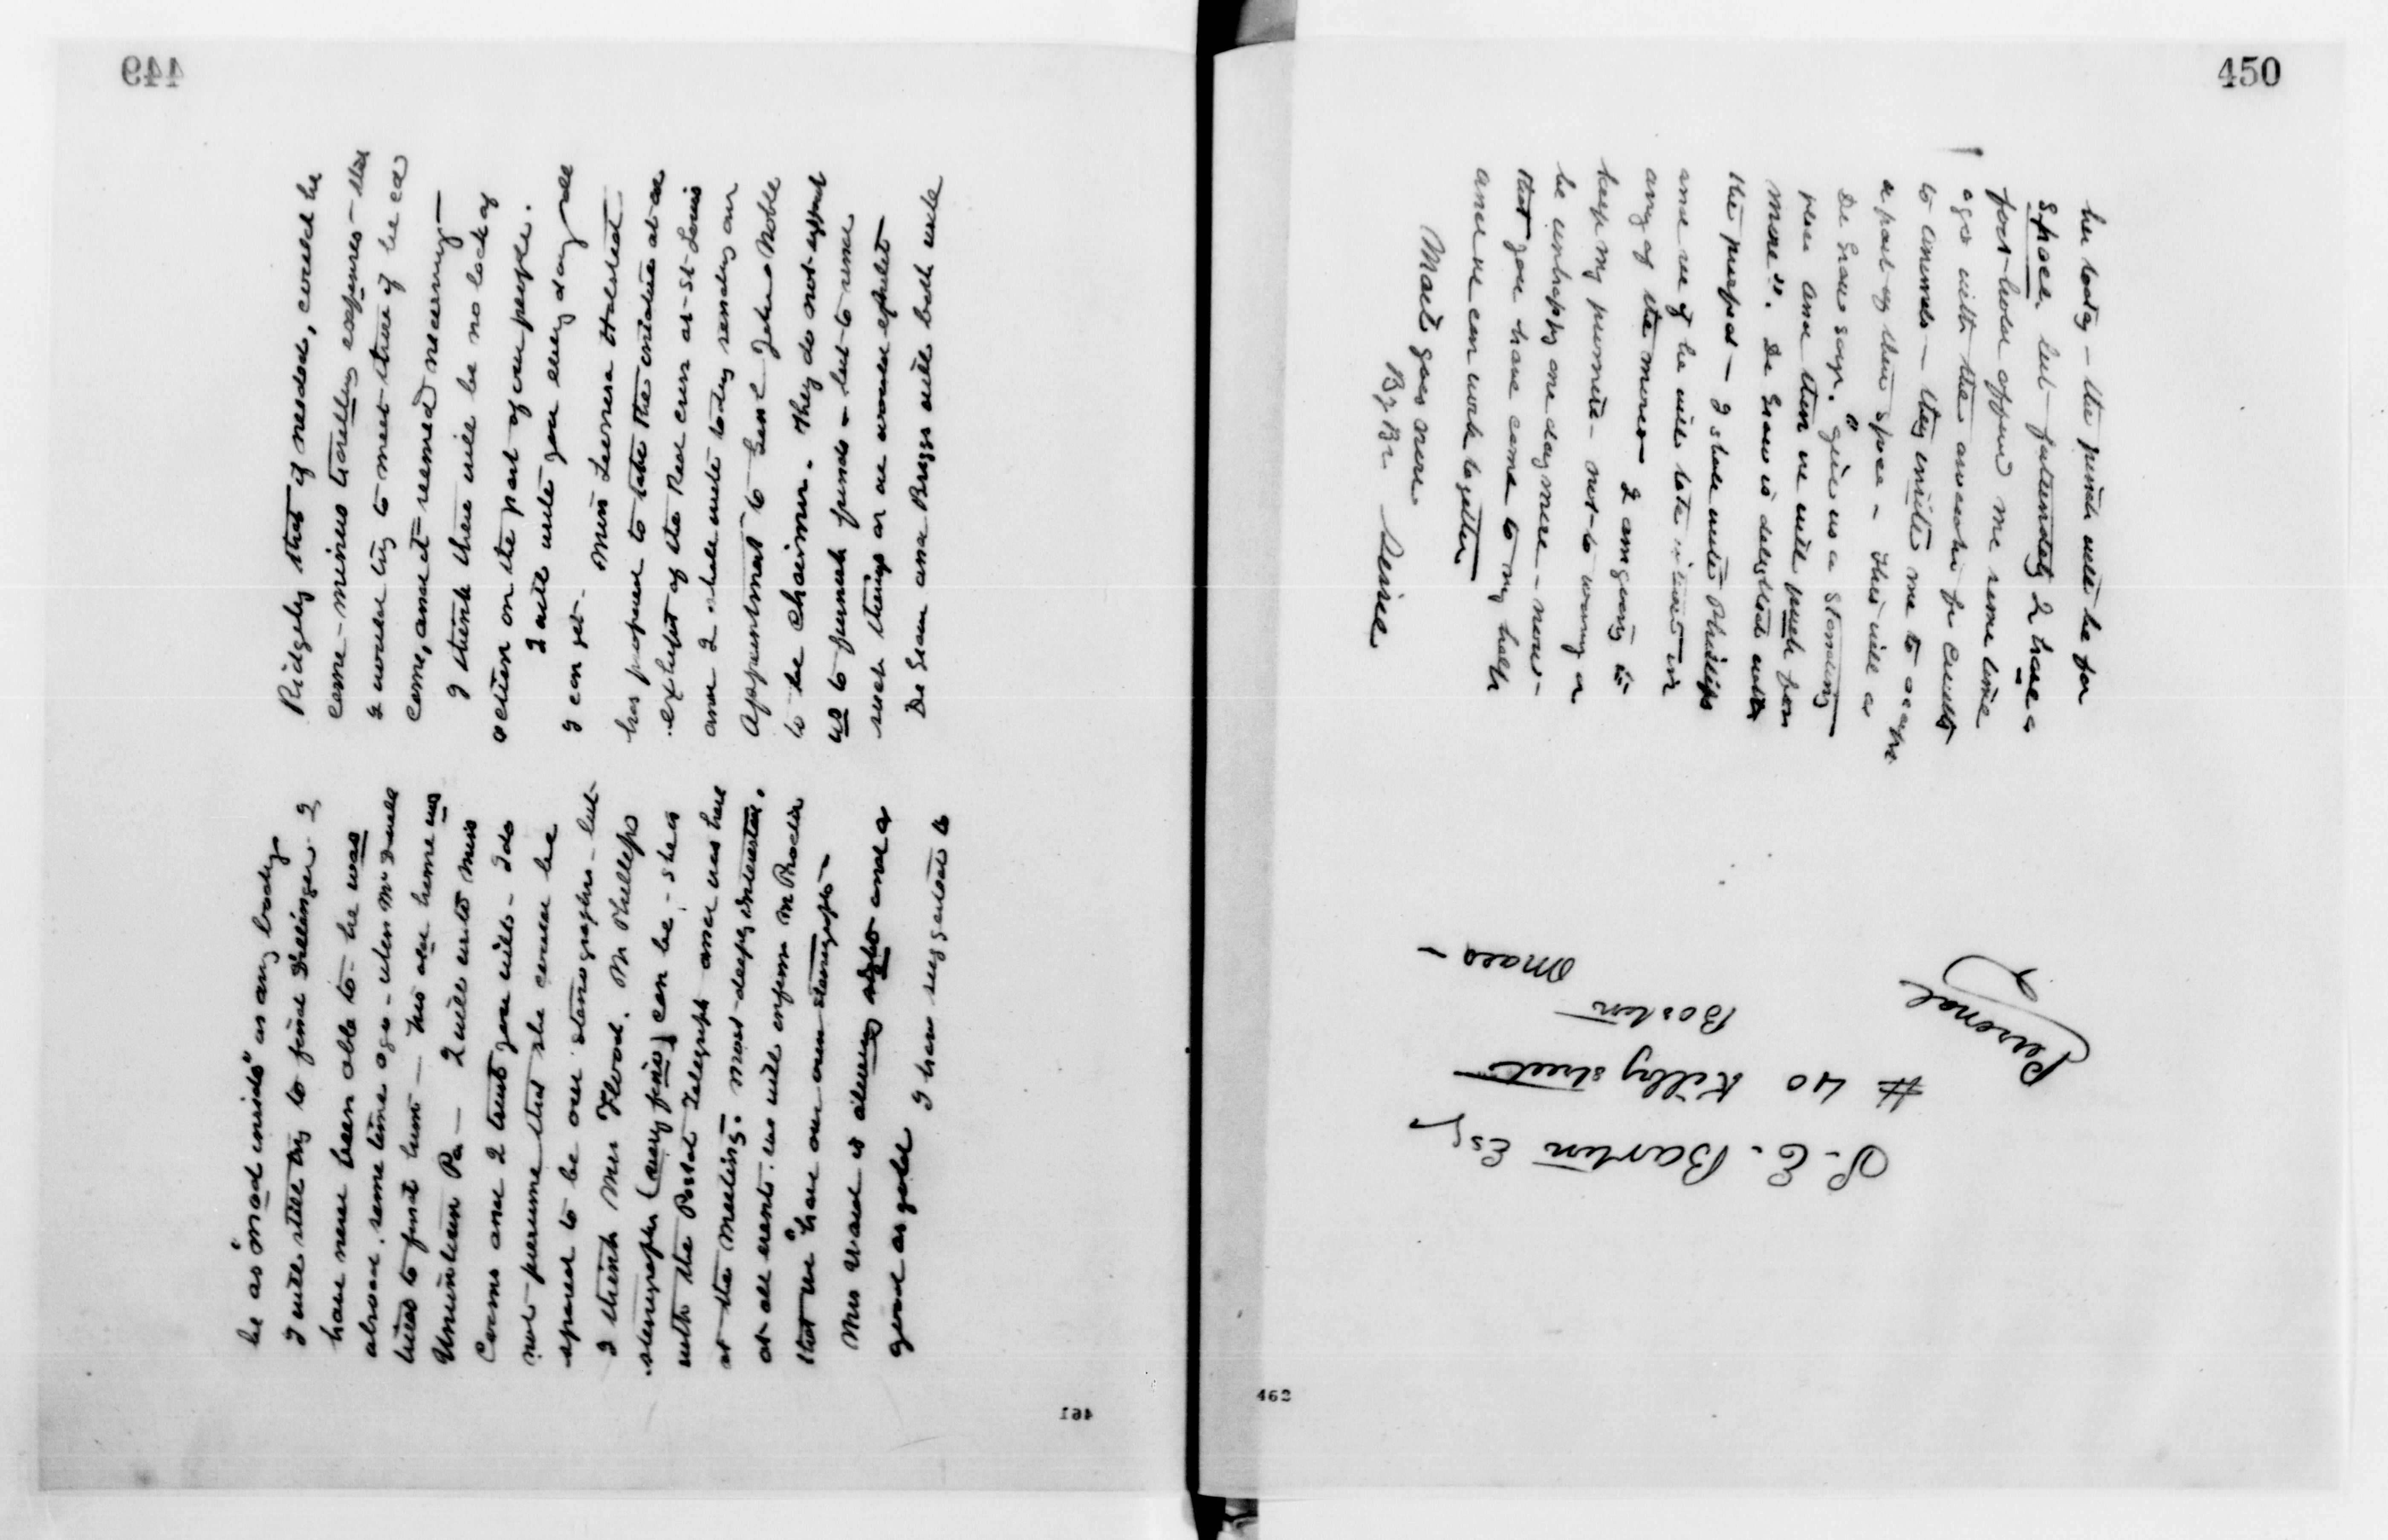 449
be as "mad inside" as any body
I will still try to find Dellinger I
have never been able to - he was
abroad some time ago - when Mr
tried to find him - his own home was
Uniontown Pa - I will write Miss
Coombs and I trust you will - I do
not presume that she could be
spared to be our stenographer - but
I think Mrs Flood, Mr Phillips
stenographer (very fine) can be - she is
with the Postal Telegraph and was here
at the Meeting. Most deeply interested.
at all events we will inform Mr Procter
that we "have our own stenogr" -
Mrs Ward is always right and a
good as gold
I have suggested to
Ridgely that if needed, could he
come - minus travelling expenses - that
I would try to meet these if he did
come, and it seemed necessary -
I think there will be no lack of
action on the part of our people.
I will write you every day all
I can get.
Miss Leonora Halsted
has proposed to take the initiative at an
exhibit of the Red Cross at St Louis
and I shall write today sending our
appointment to Genl John Noble
to be Chairman. They do not expect
us to furnish funds - but to send
such things as we would exhibit
De Graw and Briggs will both write
461
450
her today - the pinch will be for
space but fortunately I have a
foot-hold offered me some time
ago with the
to - they invite me to occupy
a part of their space - This will as
De Graw says. "give us a standing
place and then we will push from
more". De Graw is delighted with
the prospect - I shall write Phillips
and see if he will take interest in
any of the moves - I am going to
keep my promise - not to worry or
be unhappy one day more - now -
that you have come to my help
and we can work together
Mail goes now
By By Sister
Personal
S. E. Barton Esq
# 40 Kilby street
Boston
Mass -
462